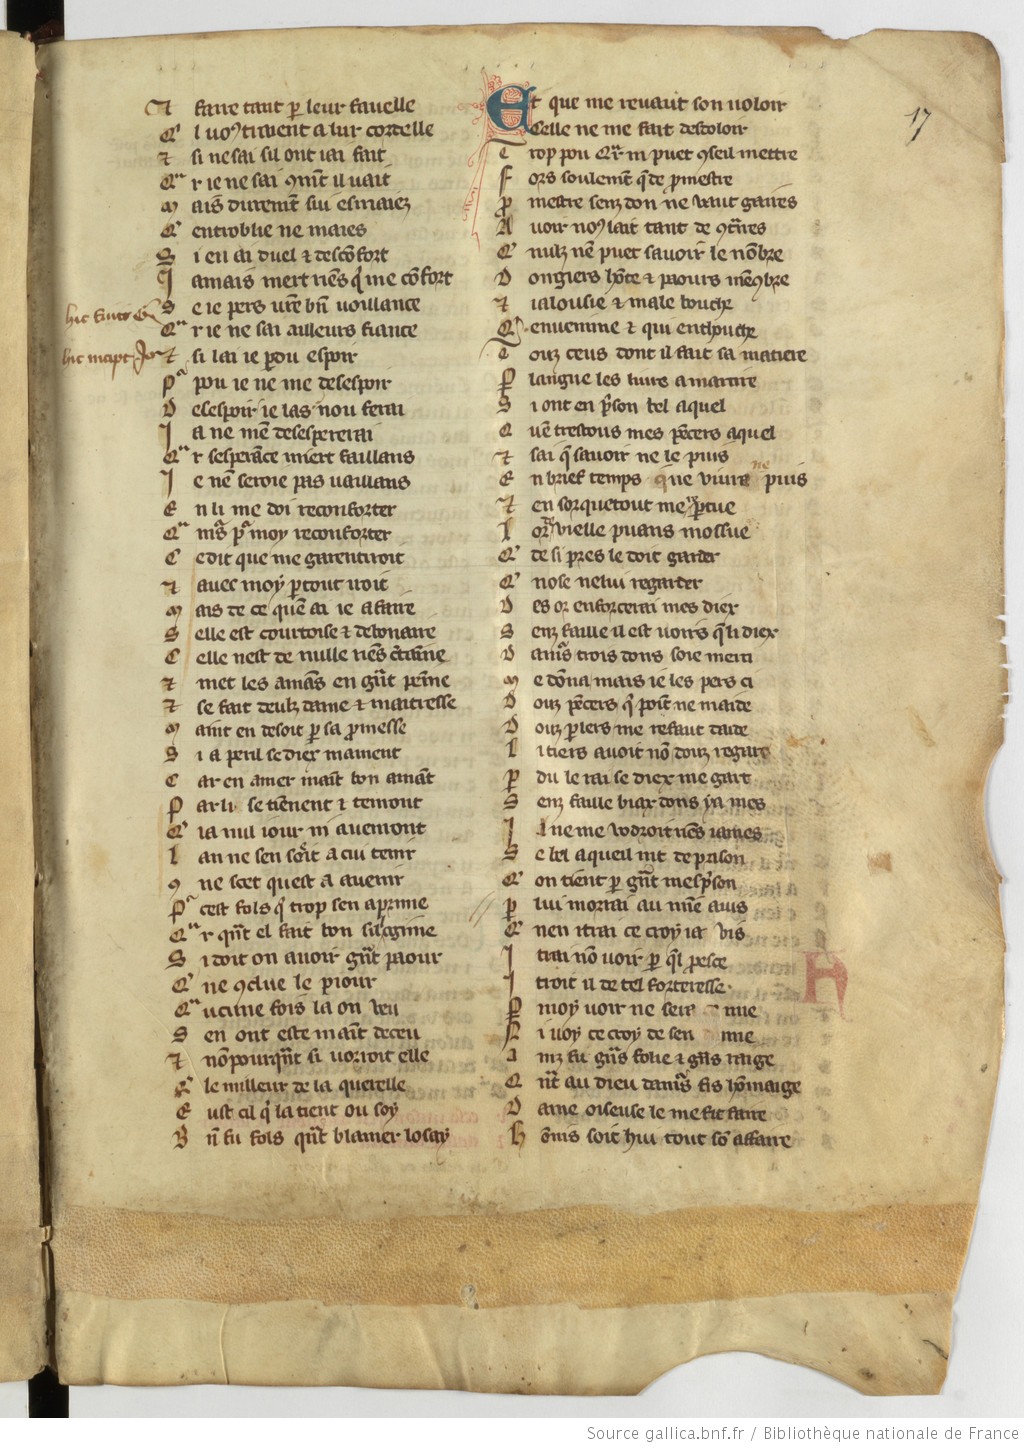 ⁊ faire tant ꝑ leur fauelle
Qͥl uoꝰ tirvent a lur cordelle
⁊ si ne sai sil ont iai fait
Qͣr ie ne sai ꝯmēt il vait
Mais durement sui esmaiez
Qͥ entroblie ne maies
Si en ai duel ⁊ descōfort
Jamais niert riēs qͥ me cōfort
Se ie pers vr̄e bn̄ uoillance
Qͣr ie ne sai ailleurs fiance
⁊ si lai ie ꝑdu espoir
Pͣ pou ie ne me desespoir
Desespoir ie las nou ferai
Ja ne mē desespererai
Qͣr sesperāce miert faillans
Je nē seroie pas vaillans
En li me doi reconforter
Qͣ mͣs pͣ moy reconforter
Ce dit que me garentiroit
⁊ avec moy ꝑtout iroit
Mais de ce quē ai ie a faire
Selle est courtoise ⁊ debonaire
Celle nest de nulle riēs c̄taine
⁊ met les amās en gͣt peine
⁊ se fait deulz dame ⁊ maitresse
Maint en desoit ꝑ sa ꝓmesse
Si a peril se diex mament
Car en amer mait bon amāt
Par li se tiēnent ⁊ tenront
Qͥ ia nul iour ni avenront
Lan ne sen scͥt a cui tenir
ꝯ ne scet quest a avenir
Pͣ cest fols qͥ trop sen aprime
Qͣr qͣt el fait bon silogime
Si doit on avoir gͣt paour
Qͥ ne ꝯclue le piour
Qͣ ucune fois la on veu
Sen ont este maīt deceu
⁊ nō pourqͣt si vorroit elle
Qͥ le milleur de la querelle
Eust cil qͥ la tient ou soy
Bn̄ fu fols qͣt blamer losay
hic incipit
Et que me revaut son uoloir
Celle ne me fait desoloir
Trop pou qͣr ni puet ꝯseil mettre
Fors soulement qͥ de ꝓmestre
Ꝓmestre senz don ne vaut gaires
Avoir noꝰ lait tant de ꝯtͣres
Qͥ nulz nē puet savoir le nōbre
Dongiers hōte ⁊ paours mēꝯbre
⁊ ialousie ⁊ male bouche
Qͥ envenime ⁊ qui entouche
Touz ceus dont il fait sa matiere
Ꝑ langue les livre a martire
Si ont en pͥson bel aquel
Qͥ vē trestous mes pēcers aquel
⁊ sai qͥ savoir ne le puis
En brief temps que vivre ne puis
⁊ en sorquetout me ꝑtue
Lorͩ vielle puans mossue
Qͥ de si pres le doit garder
Qͥ nose nelui regarder
Des or enforcerai mes diex
Senz faille il est voirs qͥ li diex
Damͬs trois dons soie merci
Me dōna mais ie les pers ci
Douz pēcers qͥ poīt ne maide
Douz parlers me refaut daide
Li tiers avoit nō douz regars
Ꝑdu le rai se diex me gart
Senz faille biax dons y a mes
Ja ne me vodroit riēs iames
Se bel aqueil nit de prison
Qͥ on tient ꝑ gͣt mespͥson
Ꝑ lui morrai au miē avis
Qͥ nen itrai ce croy ia vis
Itrai nō voir ꝑ qͤl ꝓesce
Itroit il de tel forteresse
Ꝑ moy voir ne sera mie
Ni voy ce croy de sen mie
Ainz fu gͣns folie ⁊ gͣns rage
Qͣnt au dieu damͬs fis hōmaige
Dame oiseuse le me fit faire
Hōnis soit hui tout sō affaire
17
Source gallica.bnf.fr / Bibliothèque nationale de France